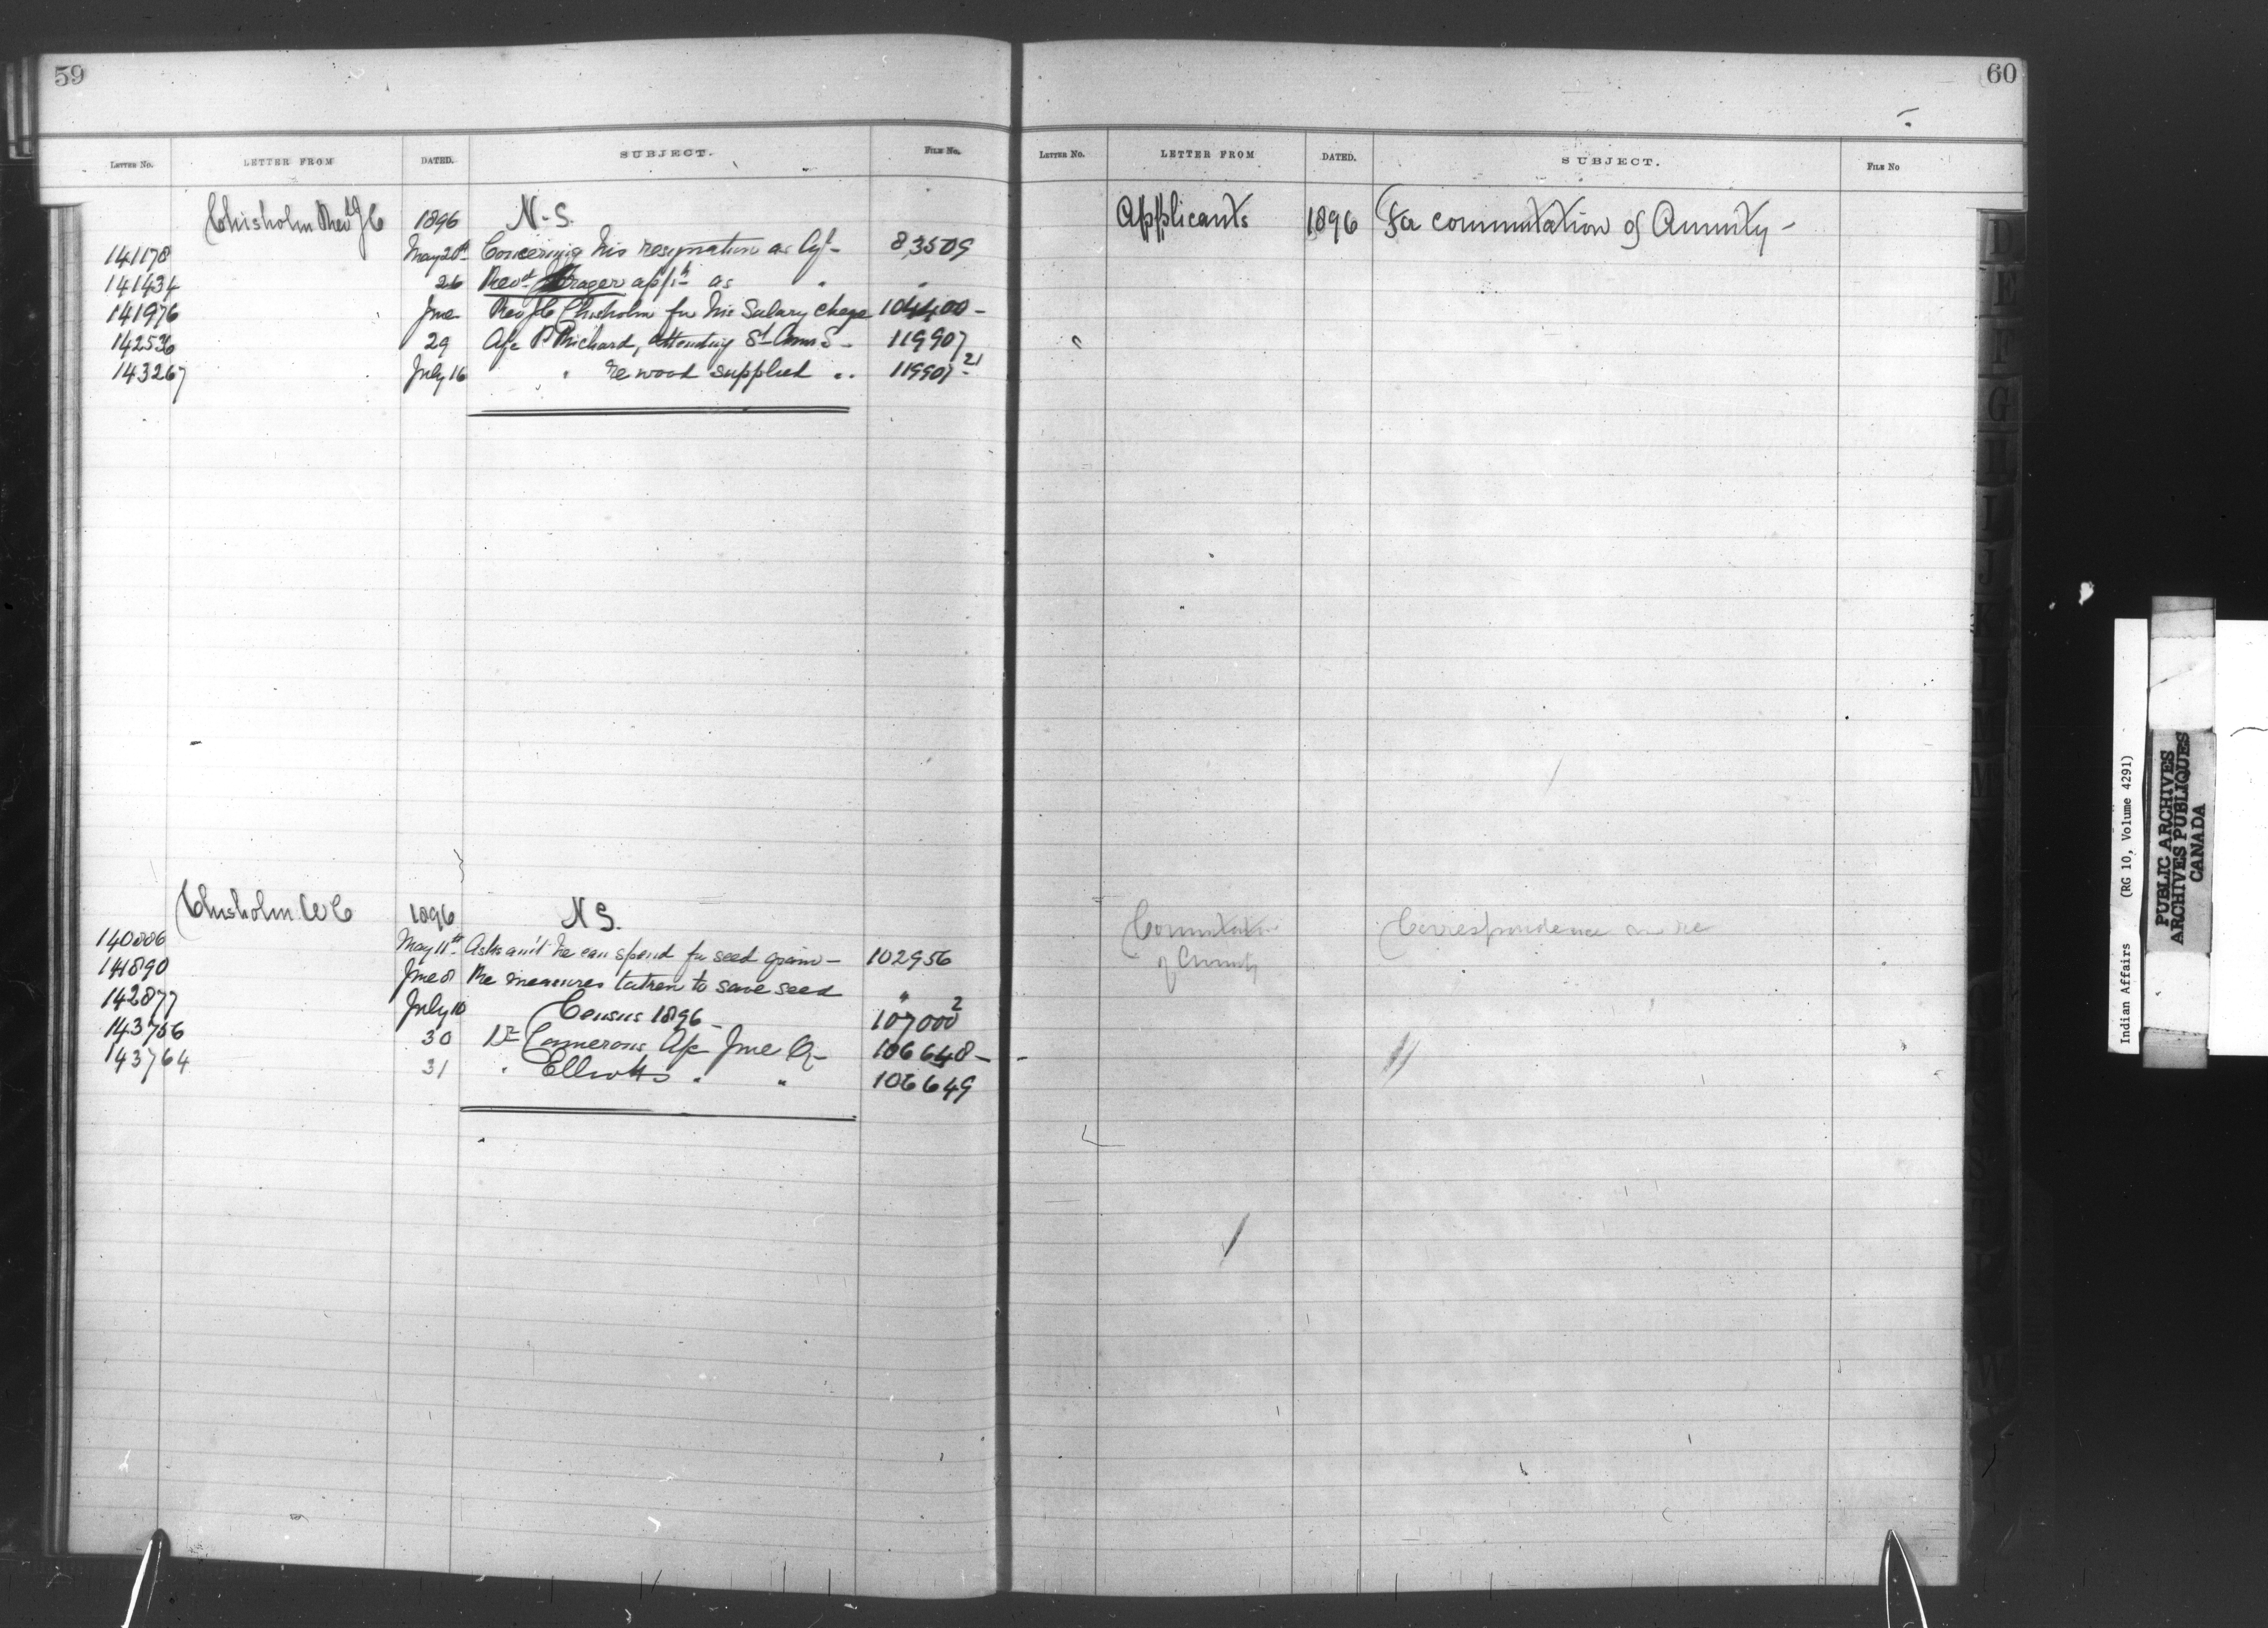 59
LETTER NO. LETTER FROM DATED. SUBJECT. FILE NO.
Chisholm Revd J C 1896 N.S.
141178 May 20th Concerning his resignation as Agt - 83509
141434 26 Revd Frager appt as " "
141976 June Rev J C Chisholm for his Salary chege 104400 -
142536 29 A/c P Richard, attending St Anns - 119907
143267 July 16 " re wood supplied " 119907-21
Chisholm W C 1896 N S.
140886 May 11th Asks am't he can spend for seed grain - 102956
141890 June 8 Re measures taken to save seed "
142877 July 10 Census 1896 - 107000 2
143756 30 Dr Camerons A/c June Q - 106648 -
143764 31 " Elliotts " " 106649
60
LETTER NO. LETTER FROM DATED. SUBJECT. FILE NO
Applicants 1896 For commutation of Annuity -
Commutation Correspondence re
of Annuity
Indian Affairs (RG 10, Volume 4291)
PUBLIC ARCHIVES
ARCHIVES PUBLIQUES
CANADA
D
E
F
G
H
I
J
K
L
M
W